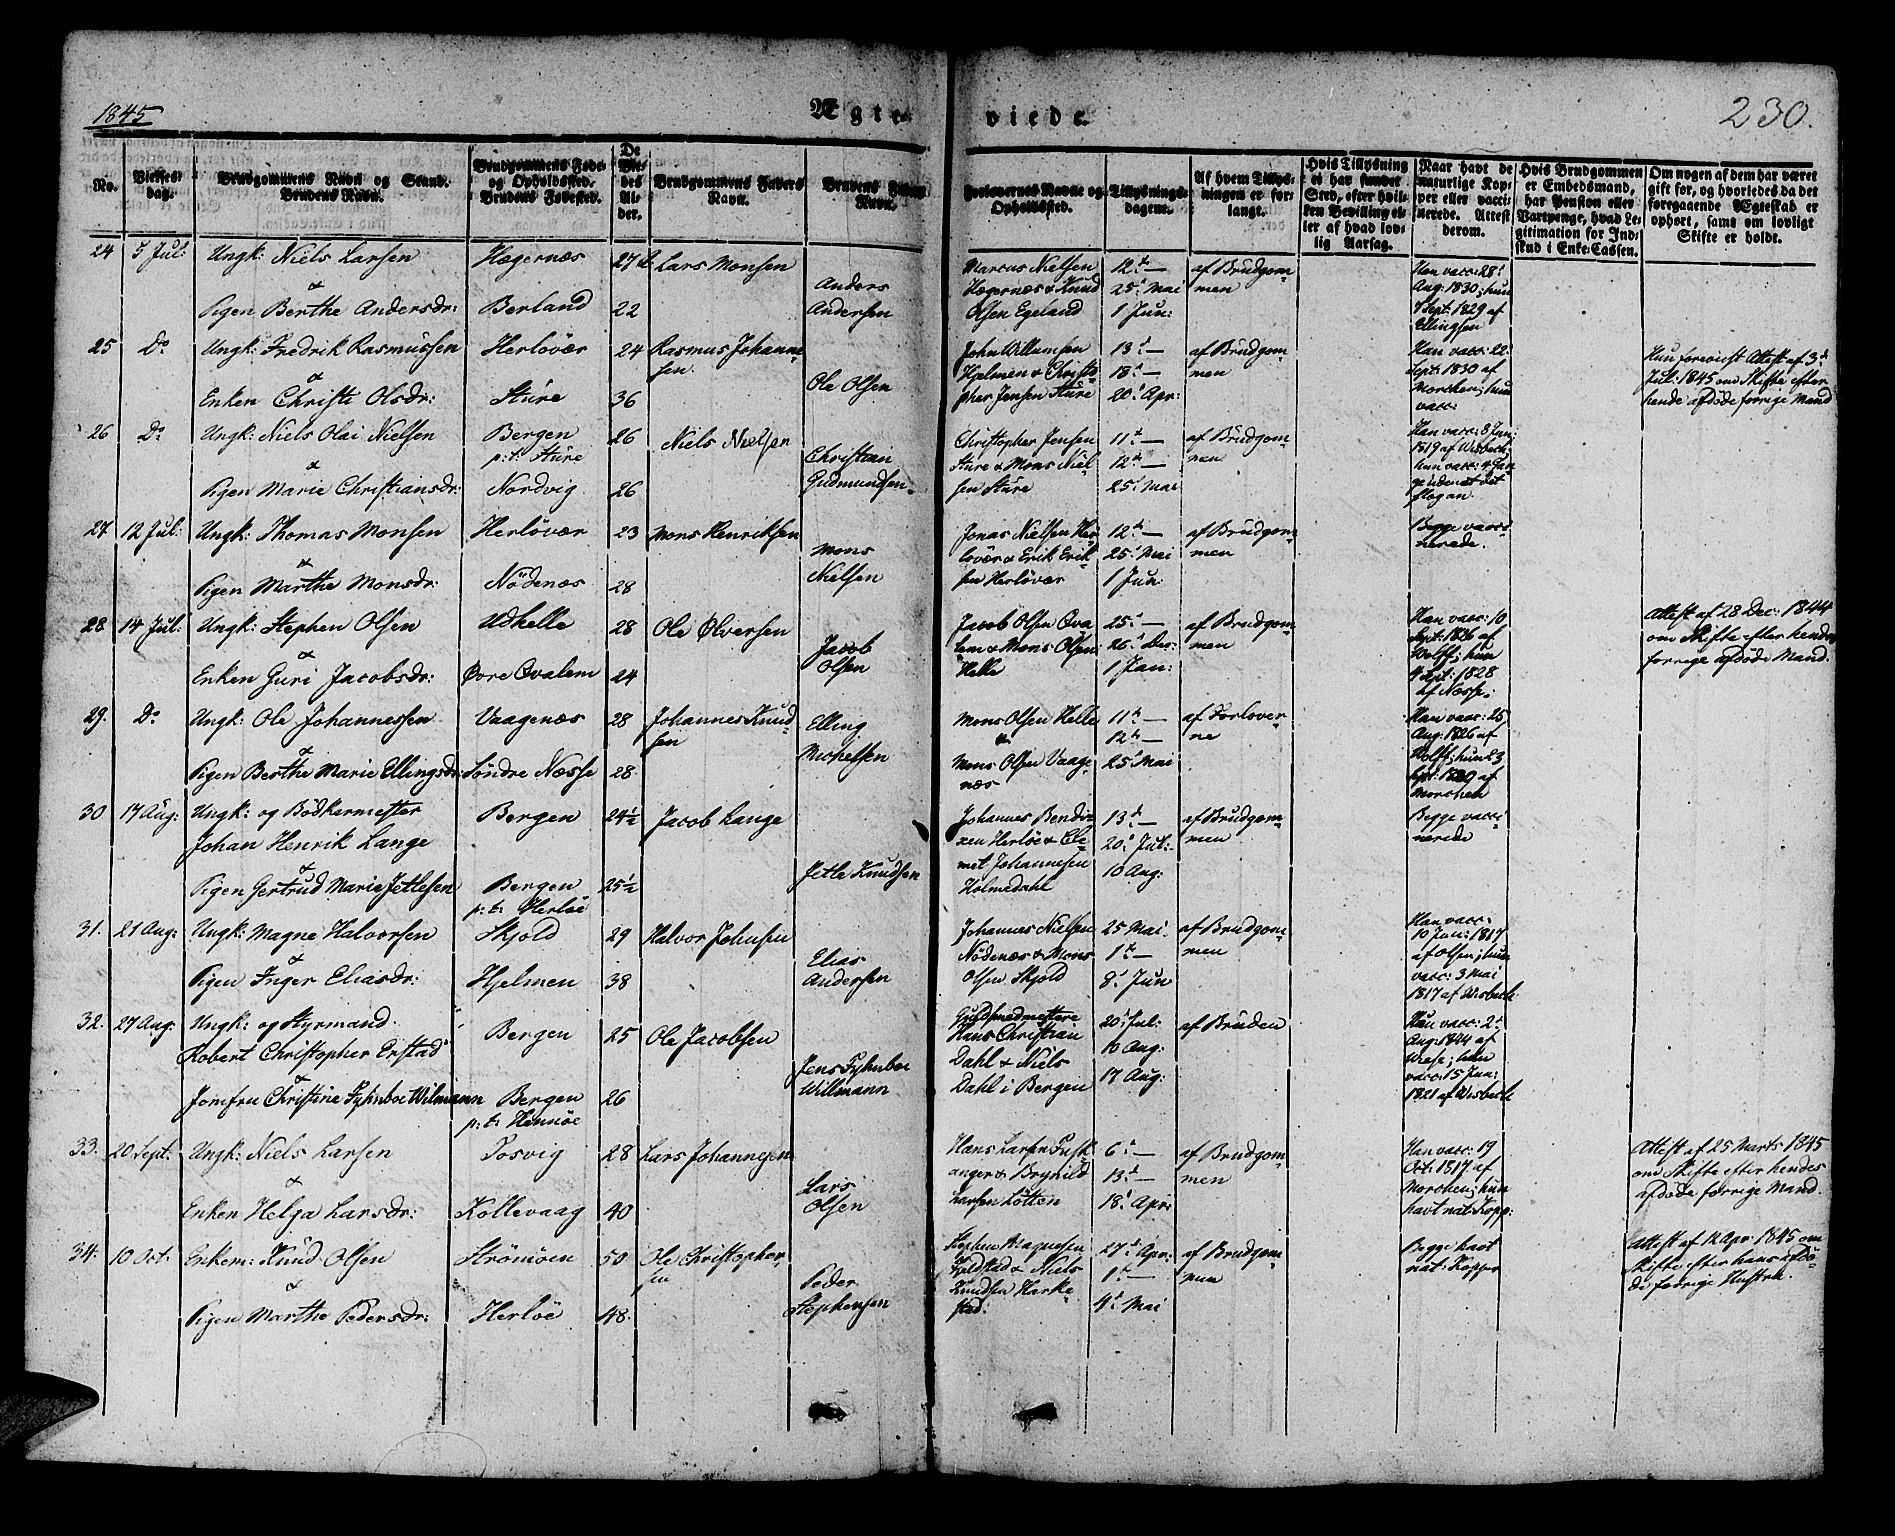 1845
Ægte-viede.
230.
No.
Vielses-dag.
Brudgommens Navn og Stand.
Brudens Navn.
Brudgommens Føde- og Opholdssted.
Brudens Fødested.
De Viedes Alder.
Brudgommens Faders Navn.
Brudens Faders Navn.
Forlovernes Navne og Opholdssted.
Tillysnings-dagene.
Af hvem Tillysningen er forlangt.
Hvis Tillysning ei har fundet Sted, efter hvilken Bevilling eller af hvad lovlig Aarsag.
Naar havt de naturlige Kopper eller vaccinerede. Attest derom.
Hvis Brudgommen er Embedsmand, har Pension eller Vartpenge, hvad Legitimation for Indskud i Enke-Cassen.
Om nogen af dem har været gift før, og hvorledes da det foregaaende Ægteskab er ophørt, samt om lovligt Skifte er holdt.
24 5 Jul: Ungk: Niels Larsen Hægernæs 27 Lars Monsen
&
Pigen Berthe Andersdr: Berland 22 Anders Andersen
Marcus Nielsen Hægernæs & Knud Olsen Egeland
12te — 25d Mai 1 Jun:
af Brudgommen
Han vacc: 28d Aug: 1830; hun 7 Sept: 1829 af Ellingsen
25 Do Ungk: Fredrik Rasmussen Herløvær 24 Rasmus Johannesen
&
Enken Christi Olsdr: Sture 36 Ole Olsen
John Willumsen Hjelmen & Christopher Jensen Sture
13d — 18d — 20d Apr:
af Brudgommen
Han vacc: 22 Sept: 1830 af Morchen; hun vacc:
Hun foreviist Attest af 3d Jul: 1845 om Skifte efter hende afdøde forrige Mand
26 Do Ungk: Niels Olai Nielsen Bergen p:t: Sture 26 Niels Nielsen
&
Pigen Marie Christiansdr: Nordvig 26 Christian Gudmundsen
Christopher Jensen Sture & Mons Nielsen Sture
11te — 12te — 25d Mai
af Brudgommen
Han vacc: 8 Jun: 1819 af Wisbech hun vacc:
27 12 Jul: Ungk: Thomas Monsen Herløvær 23 Mons Henriksen
&
Pigen Marthe Monsdr: Nødenæs 28 Mons Nielsen
Jonas Nielsen Herløvær & Erik Eriksen Herløvær
12te — 25d Mai 1 Jun:
af Brudgommen
Begge vaccinerede.
28 14 Jul: Ungk: Stephen Olsen Udhelle 28 Ole Ølversen
&
Enken Guri Jacobsdr: Øvre Qvalem 24 Jacob Olsen
Jacob Olsen Qvalem & Mons Olsen Helle
25d — 26d Dec: 1 Jan:
af Brudgommen
Han vacc: 10 Sept: 1826 af Wolff; hun 4 Sept: 1828 af Næsse
Attest af 28 Dec: 1844 om Skifte efter hendes forrige afdøde Mand.
29. Do Ungk: Ole Johannessen Vaagenæs 28 Johannes Knudsen
&
Pigen Berthe Marie Ellingsdr: Søndre Næsse 28 Elling Michelsen
Mons Olsen Helle & Mons Olsen Vaagenæs
11te — 12te — 25d Mai
af Forloverne
Han vacc: 25 Aug: 1826 af Wolff; hun 23 Sept: 1829 af Morchen
30 17 Aug: Ungk: og Bødkermester Johan Henrik Lange Bergen 24½ Jacob Lange
&
Pigen Gertrud Marie Jetlesen Bergen p:t: Herløe 25½ Jetle Knudsen
Johannes Bendixen Herløe & Clemet Johannesen Holmedahl
13d — 20d Jul: 10 Aug:
af Brudgommen
Begge vaccinerede
31. 21 Aug: Ungk: Magne Halvorsen Skjold 29 Halvor Johnsen
&
Pigen Inger Eliasdr: Hjelmen 38 Elias Andersen
Johannes Nielsen Nødenæs & Mons Olsen Skjold
25 Mai 1te — 8d Jun
af Brudgommen
Han vacc: 10 Jun: 1817 af Olsen; hun vacc: 3 Mai 1817 af Wisbech
32. 27 Aug: Ungk: og Styrmand Robert Christopher Erstad Bergen 25 Ole Jacobsen
&
Jomfru Christine Fyhnboe Wilmann Bergen p:t: Hennøe 26 Jens Fyhnboe Willmann
Guldsmedmestere Hans Christian Dahl & Niels Dahl i Bergen
20d Jul: 10 Aug: 17 Aug:
af Bruden
Han vacc: 2d Aug: 1844 af Wiese; hun vacc: 15 Jun: 1821 af Wisbech
33. 20 Sept: Ungk: Niels Larsen Tosvig 28 Lars Johannesen
&
Enken Helga Larsdr: Kollevaag 40 Lars Olsen
Hans Larsen Tuftanger & Brynild Larsen Totten
6d — 13d — 18d Apr:
af Brudgommen
Han vacc: 19 Oct: 1817 af Morchen; hun havt nat: Kopp:
Attest af 25 Marts 1845 om Skifte efter hendes afdøde forrige Mand.
34. 10 Oct: Enkem: Knud Olsen Strømøen 50 Ole Christophersen
&
Pigen Marthe Pedersdr: Herløe 48 Peder Stephensen
Stephen Magnesen & Niels Knudsen
27d Apr: 1te — 4d Mai
af Brudgommen
Begge havt nat: Kopper
Attest af 12 Apr: 1845 om Skifte efter hans afdøde forrige Hustru.